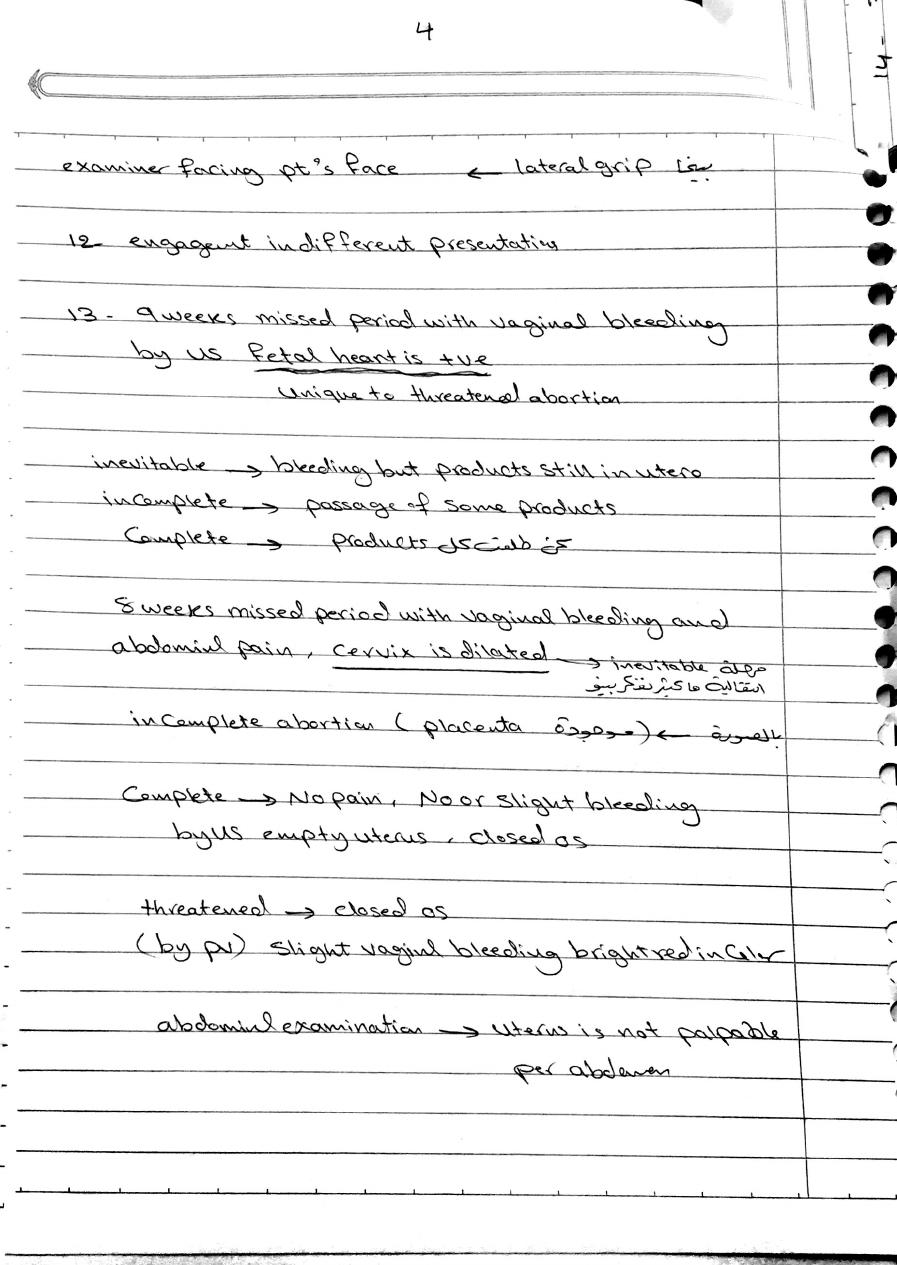 4
14-
examiner facing pt's face ← lateral grip بينما
12- engagemt in different presentations
13- 9 weeks missed period with vaginal bleeding
by us fetal heart is +ve
Unique to threatened abortion
inevitable → bleeding but products still in utero
incomplete → passage of some products
Complete → products كل
8 weeks missed period with vaginal bleeding and
abdominl pain, cervix is dilated → inevitable مرحلة
انتقالية ما كثير نفكر بيها
incomplete abortion (placenta موجودة) ← بالصورة
Complete → No pain, No or slight bleeding
by US empty uterus, closed os
threatened → closed os
(by pv) slight vaginl bleeding bright red in color
abdominl examination → uterus is not palpable
per abdomen